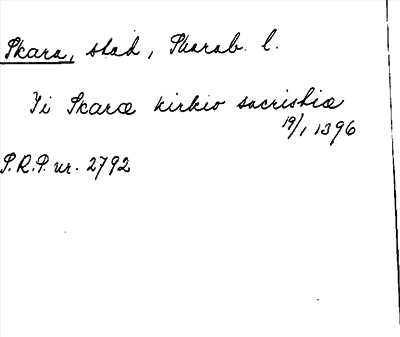 Skara, stad, Skarab. l.
Ji Skaræ kirkio sacristiæ
19/1 1396
P.R.P. nr. 2792